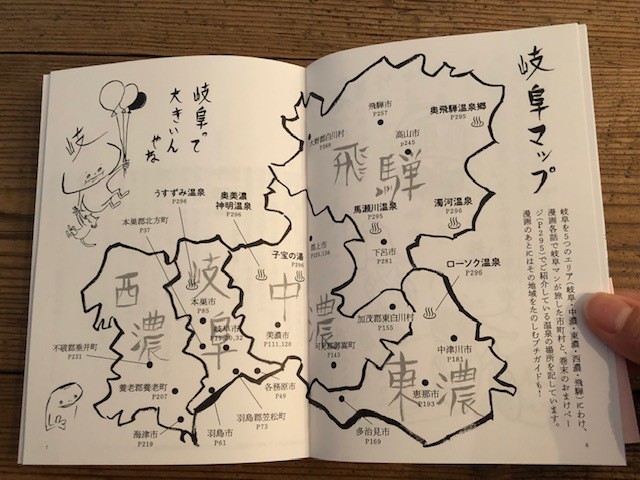 岐阜マップ
岐阜を5つのエリア(岐阜・中濃・東濃・西濃・飛騨)にわけ、
漫画各話で岐阜マンが旅した市町村と、巻末のおまけペー
ジ(P295)でご紹介している温泉の場所を記しています。
漫画のあとにはその地域をたのしむプチガイドも!
飛騨市
P257
奥飛騨温泉郷
P295
大野郡白川村
P269
高山市
P245
飛騨
馬瀬川温泉
P295
濁河温泉
P296
郡上市
P125,138
下呂市
P281
ローソク温泉
P296
加茂郡東白川村
P155
中津川市
P181
P143
東濃
恵那市
P193
多治見市
P169
6
岐阜って
大きいん
やな
岐
うすずみ温泉
P296
奥美濃
神明温泉
P296
本巣郡北方町
P37
子宝の湯
P296
西濃
岐阜
中濃
本巣市
P85
岐阜市
美濃市
P111,128
不破郡垂井町
P231
養老郡養老町
P207
各務原市
P49
羽島郡笠松町
P73
海津市
P219
羽島市
P61
7